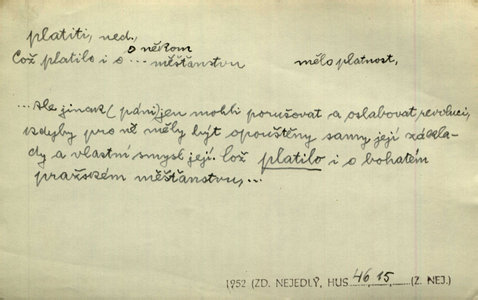 platiti, ned.,
o někom
Což platilo i o ... měšťanstvu mělo platnost,
...sle jinak (páni) jen mohli porušovat a oslabovat revoluci,
kdyby pro ně měly být opouštěny samy její zákla-
dy a vlastní smysl její. Což platilo i o bohatém
pražském měšťanstvu, ...
1952 (ZD. NEJEDLÝ, HUS 46, 15, (Z. NEJ.)